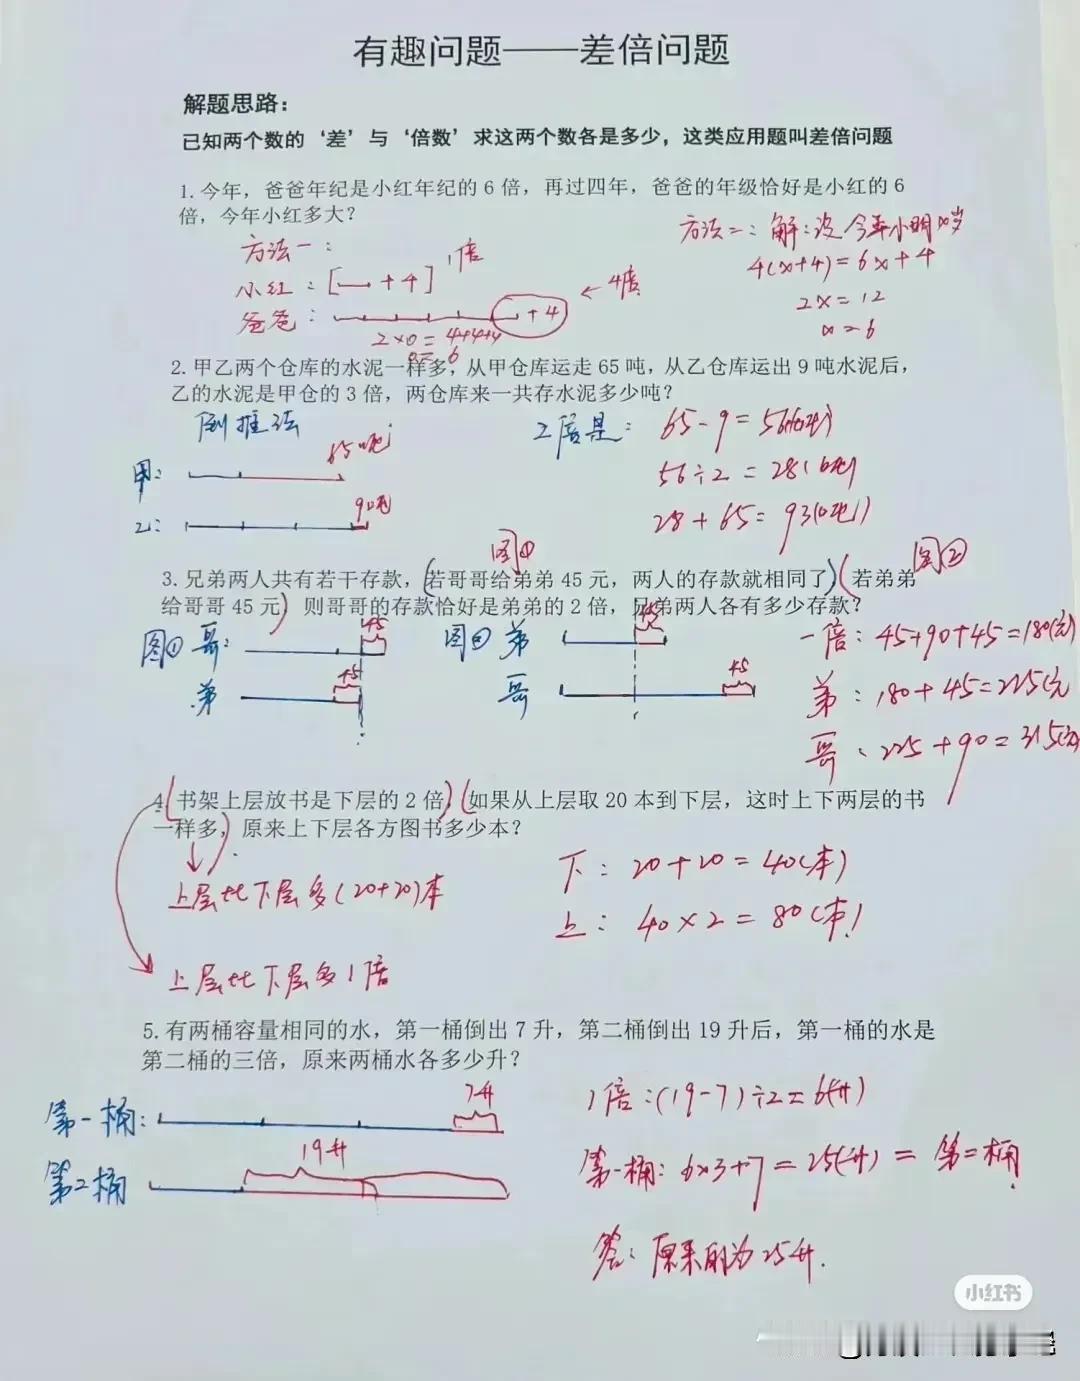 有趣问题——差倍问题
解题思路：
已知两个数的‘差’与‘倍数’求这两个数各是多少，这类应用题叫差倍问题
1. 今年，爸爸年纪是小红年纪的 6 倍，再过四年，爸爸的年级恰好是小红的 6
倍，今年小红多大？
方法一：
小红：[ + 4] 1倍
爸爸： + 4 ← 4倍
2×0 = 4+4+4
0 = 6
方法二：解：设今年小明x岁
4(x+4) = 6x+4
2x = 12
x = 6
2. 甲乙两个仓库的水泥一样多，从甲仓库运走 65 吨，从乙仓库运出 9 吨水泥后，
乙的水泥是甲仓的 3 倍，两仓库来一共存水泥多少吨？
倒推法
甲： 65吨
乙： 9吨
2倍是： 65 - 9 = 56(吨)
56÷2 = 28(吨)
28 + 65 = 93(吨)
图① 图②
3. 兄弟两人共有若干存款，(若哥哥给弟弟 45 元，两人的存款就相同了)(若弟弟
给哥哥 45 元) 则哥哥的存款恰好是弟弟的 2 倍，兄弟两人各有多少存款？
图① 哥： 45
弟 45
图② 弟 45
哥 45
一倍：45+90+45=180(元)
弟：180+45=225(元
哥：225+90=315(元
4.(书架上层放书是下层的 2 倍)(如果从上层取 20 本到下层，这时上下两层的书
一样多)，原来上下层各方图书多少本？
上层比下层多(20+20)本
上层比下层多1倍
下：20+20=40(本)
上：40×2=80(本)
5. 有两桶容量相同的水，第一桶倒出 7 升，第二桶倒出 19 升后，第一桶的水是
第二桶的三倍，原来两桶水各多少升？
第一桶： 7升
第2桶 19升
1倍：(19-7)÷2=6(升)
第一桶：6×3+7=25(升)=第二桶.
答：原来的为25升.
小红书